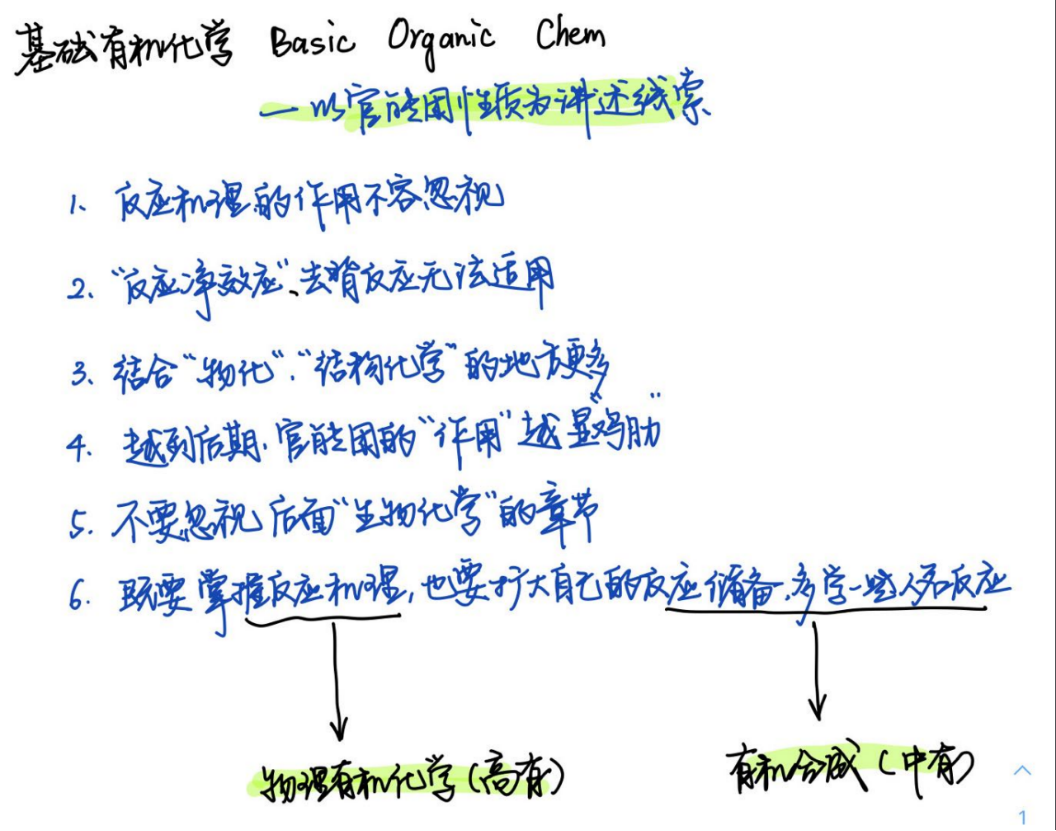 基础有机化学 Basic Organic Chem
— 以官能团性质为讲述线索
1、反应机理的作用不容忽视
2、“反应净效应”、去背反应无法适用
3、结合“物化”、“结构化学”的地方更多
4、越到后期,官能团的“作用”越显“鸡肋”
5、不要忽视后面“生物化学”的章节
6、既要掌握反应机理,也要扩大自己的反应储备,多学一些人名反应
物理有机化学(高有)
有机合成(中有)
1